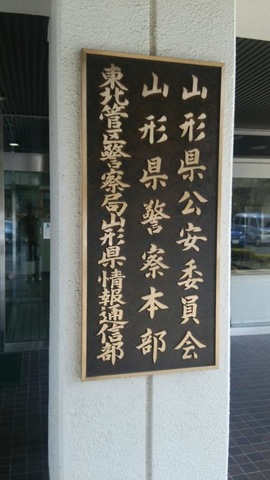 山形県公安委員会
山形県警察本部
東北管区警察局山形県情報通信部